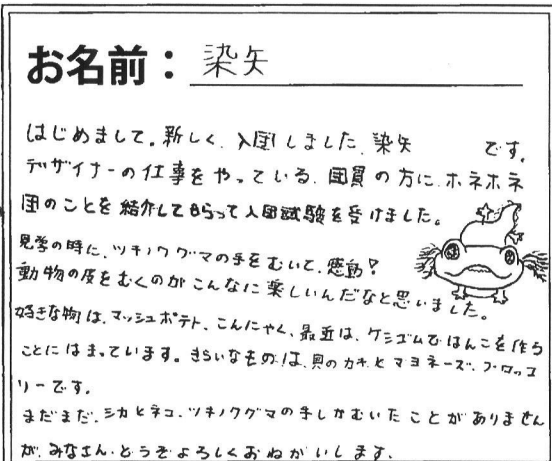 お名前：染矢
はじめまして。新しく、入団しました、染矢　です。
デザイナーの仕事をやっている、団員の方に、ホネホネ
団のことを紹介してもらって入団試験を受けました。
見学の時に、ツキノワグマの手をむいて、感動！
動物の皮をむくのがこんなに楽しいんだなと思いました。
好きな物は、マッシュポテト、こんにゃく、最近は、ケシゴムではんこを作る
ことにはまっています。きらいなものは、貝のカキとマヨネーズ、ブロッコ
リーです。
まだまだ、シカとネコ、ツキノワグマの手しかむいたことがありません
が、みなさん、どうぞよろしくおねがいします。